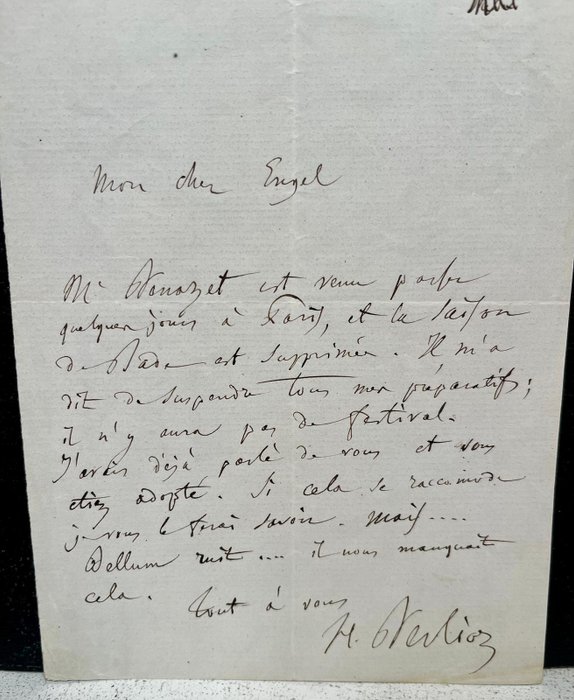 Mon cher Engel
Mr Bénazet est venu passer
quelques jours à Paris, et la saison
de Bade est supprimée. Il m'a
dit de suspendre tous mes préparatifs;
il n'y aura pas de festival.
J'avais déjà parlé de vous et vous
étiez adopté. Si cela se raccomode
je vous le ferai savoir. Mais....
Bellum ruit.... il nous manquait
cela.
Tout à vous
H. Berlioz